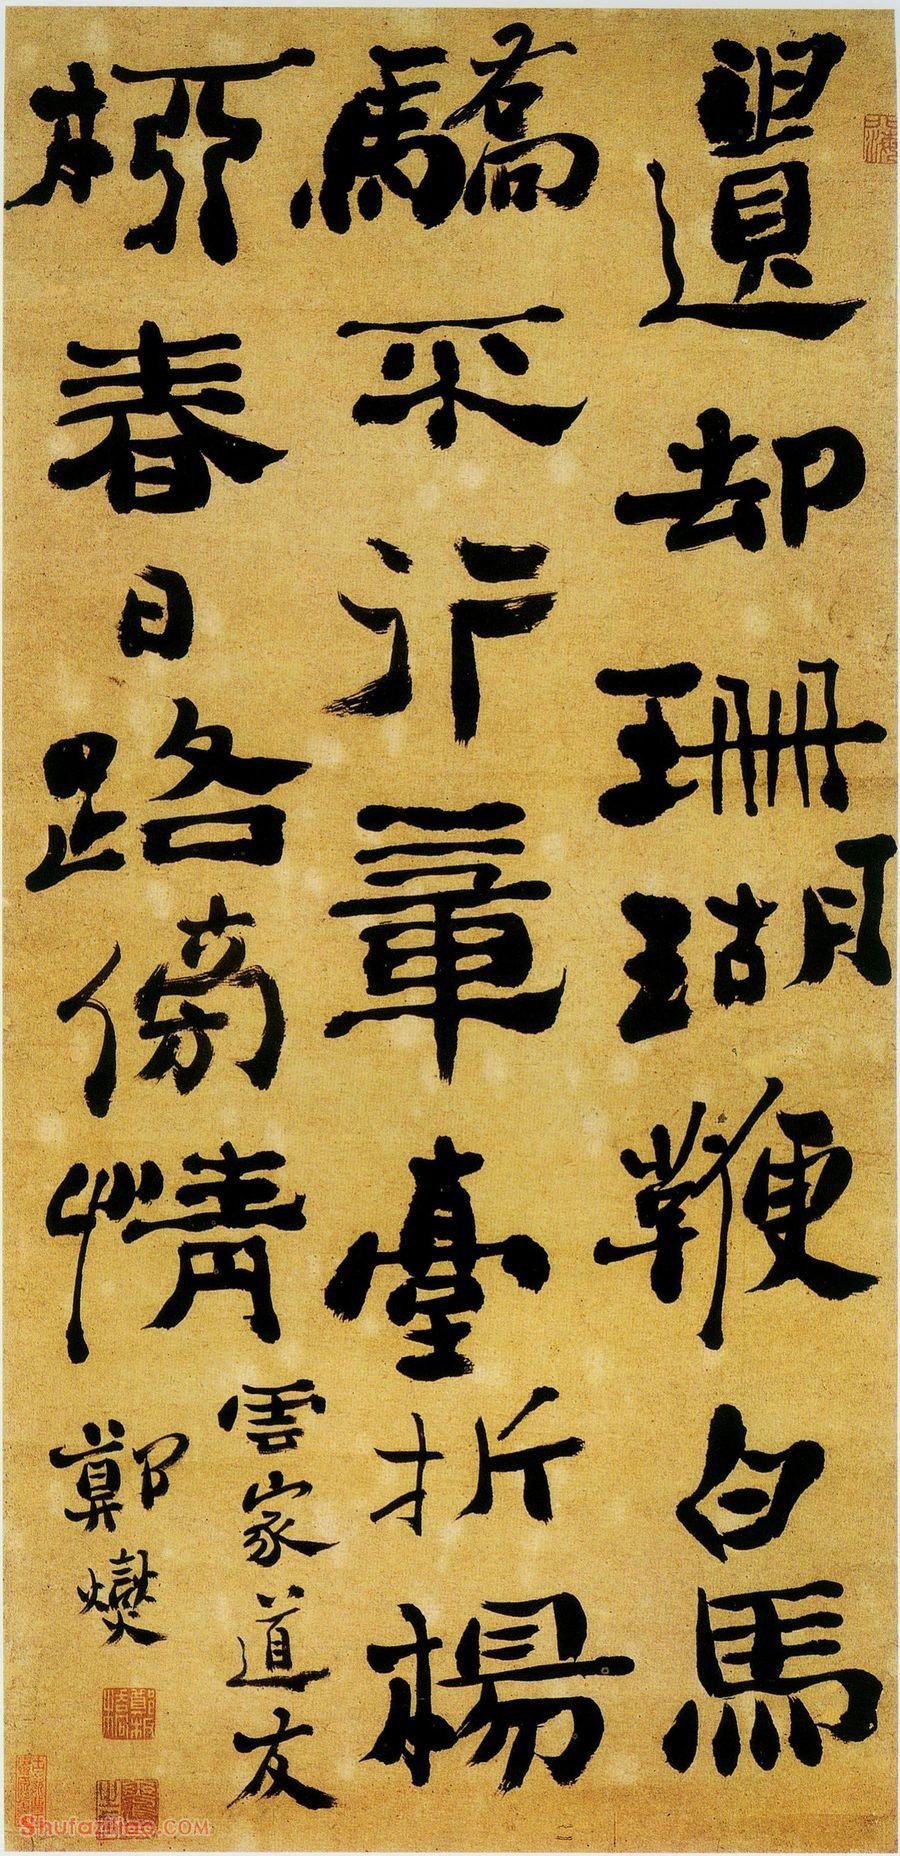 遺却珊瑚鞭白馬
驕不行章臺折楊
桺春日路傍情
雲家道友
鄭燮
Shufaziliao.COM